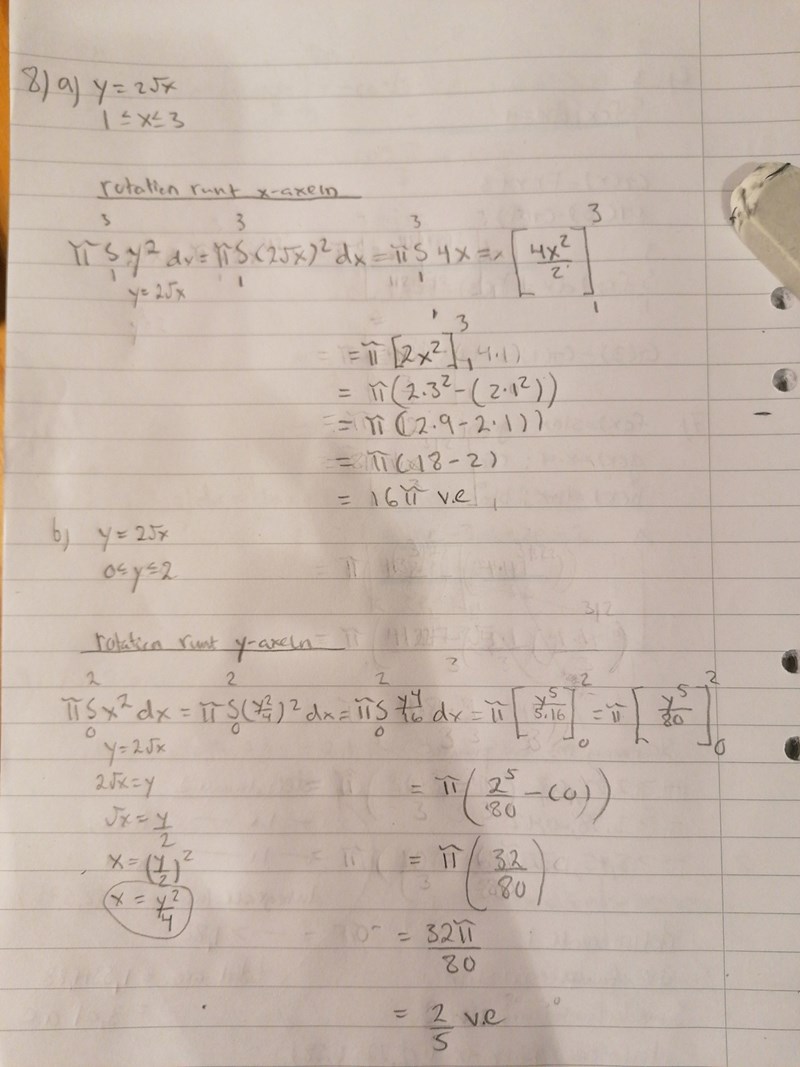 8) a) y = 2√x
1 ≤ x ≤ 3
rotation runt x-axeln
π ∫₁³ y² dx = π ∫₁³ (2√x)² dx = π ∫₁³ 4x = [4x²/2]₁³
y = 2√x
= π [2x²]₁³
= π(2·3² - (2·1²))
= π((2·9 - 2·1))
= π(18 - 2)
= 16π v.e
b) y = 2√x
0 ≤ y ≤ 2
rotation runt y-axeln
π ∫₀² x² dx = π ∫₀² (y²/4)² dx = π ∫₀² y⁴/16 dx = π [y⁵/5·16]₀² = π [y⁵/80]₀²
y = 2√x
2√x = y
= π(2⁵/80 - (0))
√x = y/2
x = (y/2)²
= π(32/80)
x = y²/4
= 32π/80
= 2/5 v.e